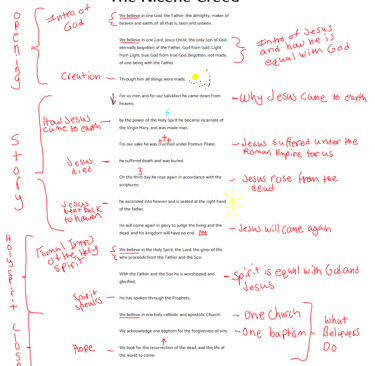 The Nicene Creed
Opening
Intro of
God
We believe in one God, the Father, the almighty, maker of
heaven and earth, of all that is, seen and unseen.
We believe in one Lord, Jesus Christ, the only Son of God,
eternally begotten of the Father, God from God, Light
from Light, true God from true God, begotten, not made,
of one being with the Father.
Intro of Jesus
and how he is
equal with God
Creation
Through him all things were made.
Story
For us men and for our salvation he came down from
heaven.
Why Jesus came to earth
How Jesus
came to earth
by the power of the Holy Spirit he became incarnate of
the Virgin Mary, and was made man.
For our sake he was crucified under Pontius Pilate;
Jesus suffered under the
Roman Empire for us
Jesus
died
He suffered death and was buried.
3
On the third day he rose again in accordance with the
scriptures;
Jesus rose from the
dead
Jesus
went back
to heaven
he ascended into heaven and is seated at the right hand
of the father.
He will come again in glory to judge the living and the
dead, and his kingdom will have no end.
Jesus will come again
Holy Spirit
Formal Intro
of the Holy
Spirit
We believe in the Holy Spirit, the Lord, the giver of life,
who proceeds from the Father and the Son
With the Father and the Son he is worshipped and
glorified.
Spirit is equal with God and
Jesus
Spirit
speaks
He has spoken through the Prophets.
Close
We believe in one holy catholic and apostolic Church.
One Church
We acknowledge one baptism for the forgiveness of sins.
One baptism
What
Believers
Do
Hope
We look for the resurrection of the dead, and the life of
the world to come.